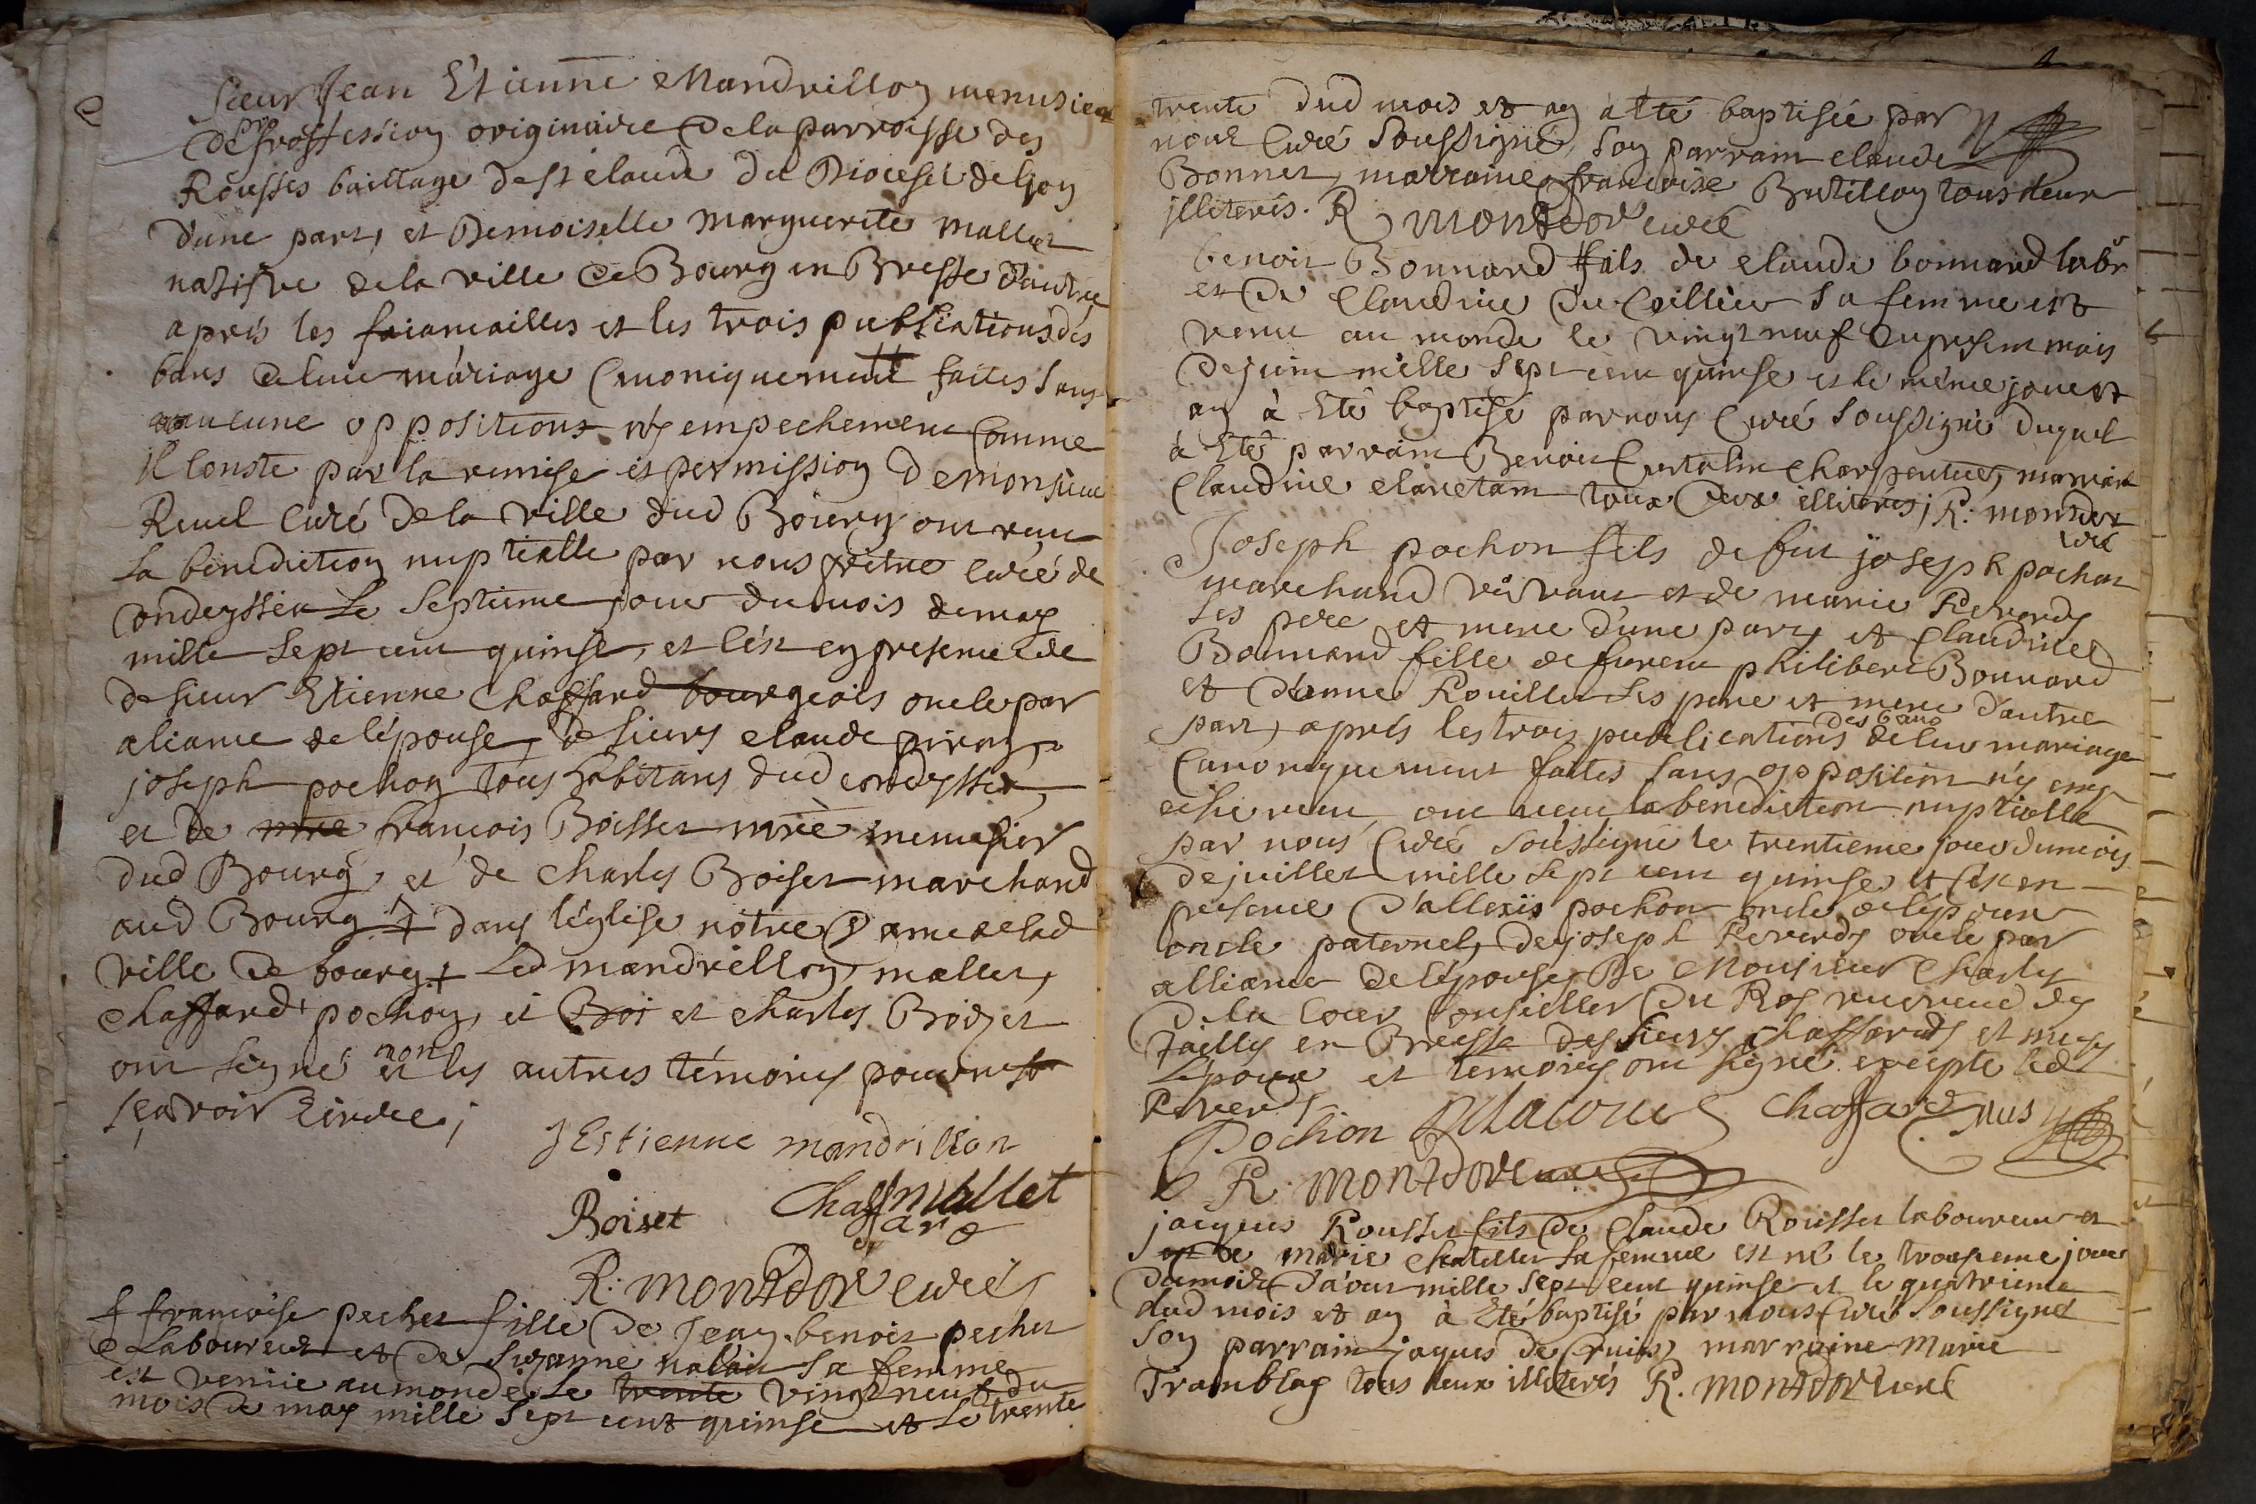 Sieur Jean Etienne Mandrillon menusier
de proffession originaire de la parroisse des
Rousses bailliage de st claude du Diocese de lyon
d'une part, et Demoiselle Marguerite mallet
natifve de la ville de Bourg en Bresse d'autre
aprés les fiançailles et les trois publications des
bans de leur mariage canoniquement faites sans
aucune oppositions n'y empechement comme
il conste par la remise et permission de monsieur
curé de la ville dud Bourg ont receu
la benediction nuptialle par nous prêtre curé de
condeyssia le septieme jour du mois de may
mille sept cent quinse, et c'est en presence de
de sieur Etienne Chaffard bourgeois oncle par
aliance de l'épouse, de sieurs claude
joseph pochon tous habitans dud condeyssia,
et de mre françois Boisset mre menusier
dud Bourg, et de Charles Boiset marchand
aud Bourg + dans l'église nôtre Dame de lad
ville de bourg + Led mandrillon, mallet,
chaffard, pochon, et Boi et charles Boiset
ont signé et non les autres témoins pour ne
sçavoir
JEstienne mandrillon
Boiset Chaffard mallet
R: MONTDOR curé
francoise pechet fille de Jean benoit pechet
Laboureur et de Suzanne sa femme
est venüe au monde le trente vingt neuf du
mois de may mille sept cent quinse et le trente
trente dud mois et an a été baptisée par
nous curé soussigné, son parrain claude
Bonnet, marraine francoise Butillon tous deux
illiterés. R MONTDOR curé
benoit Bonnard fils de claude bonnard labr
et de claudine du sa femme est
venu au monde le vingt neuf du present mois
de juin mille sept cent quinse et le même jour et
an à été baptisé par nous curé soussigné duquel
à été parrain Benoit charpentier, marraine
Claudine tous deux illiterés; R: MONTDOR
curé
Joseph pochon fils de feu joseph pochon
marchand vivant et de marie Reverdy
ses pere et mere d'une part, et Claudine
Bonnard fille de furent philibert Bonnard
et d'anne Rouillet ses pere et mere d'autre
part, aprés les trois publications des bans de leur mariage
canoniquement faites sans opposition n'y emp
echement, ont receu la benediction nuptialle
par nous curé soussigné le trentieme jour du mois
de juillet mille sept cent quinse et c'est en
presence d'allexis pochon oncle de l'epoux
oncle paternel, de joseph Reverdy oncle par
alliance de l'épouse, De Monsieur Charles
De la cour conseiller du Roy receveur des
tailles en Bresse des sieurs chaffards et
L'époux et temoins ont signé excepte led
Reverdy
Pochon Delacour Chaffard
R. MONTDOR curé
jacques Rousset fils de claude Rousset laboureur et
et de marie chatillet sa femme est né le troisieme jour
du mois d'aout mille sept cent quinse et le quatrieme
dud mois et an à été baptisé par nous curé soussigné
son parrain jaques de cruis, marraine Marie
Tramblay tous deux illiterés R. MONTDOR curé